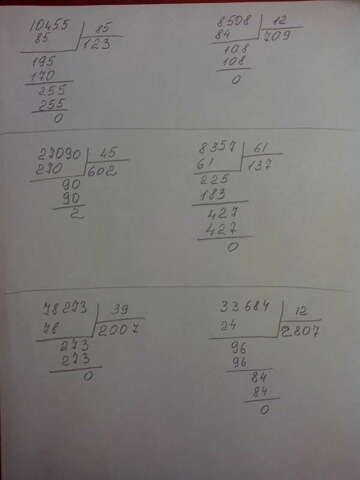 10455 85
85 123
195
170
255
255
0
8508 12
84 709
108
108
0
27090 45
270 602
90
90
2
8357 61
61 137
225
183
427
427
0
78273 39
78 2007
273
273
0
33684 12
24 2807
96
96
84
84
0